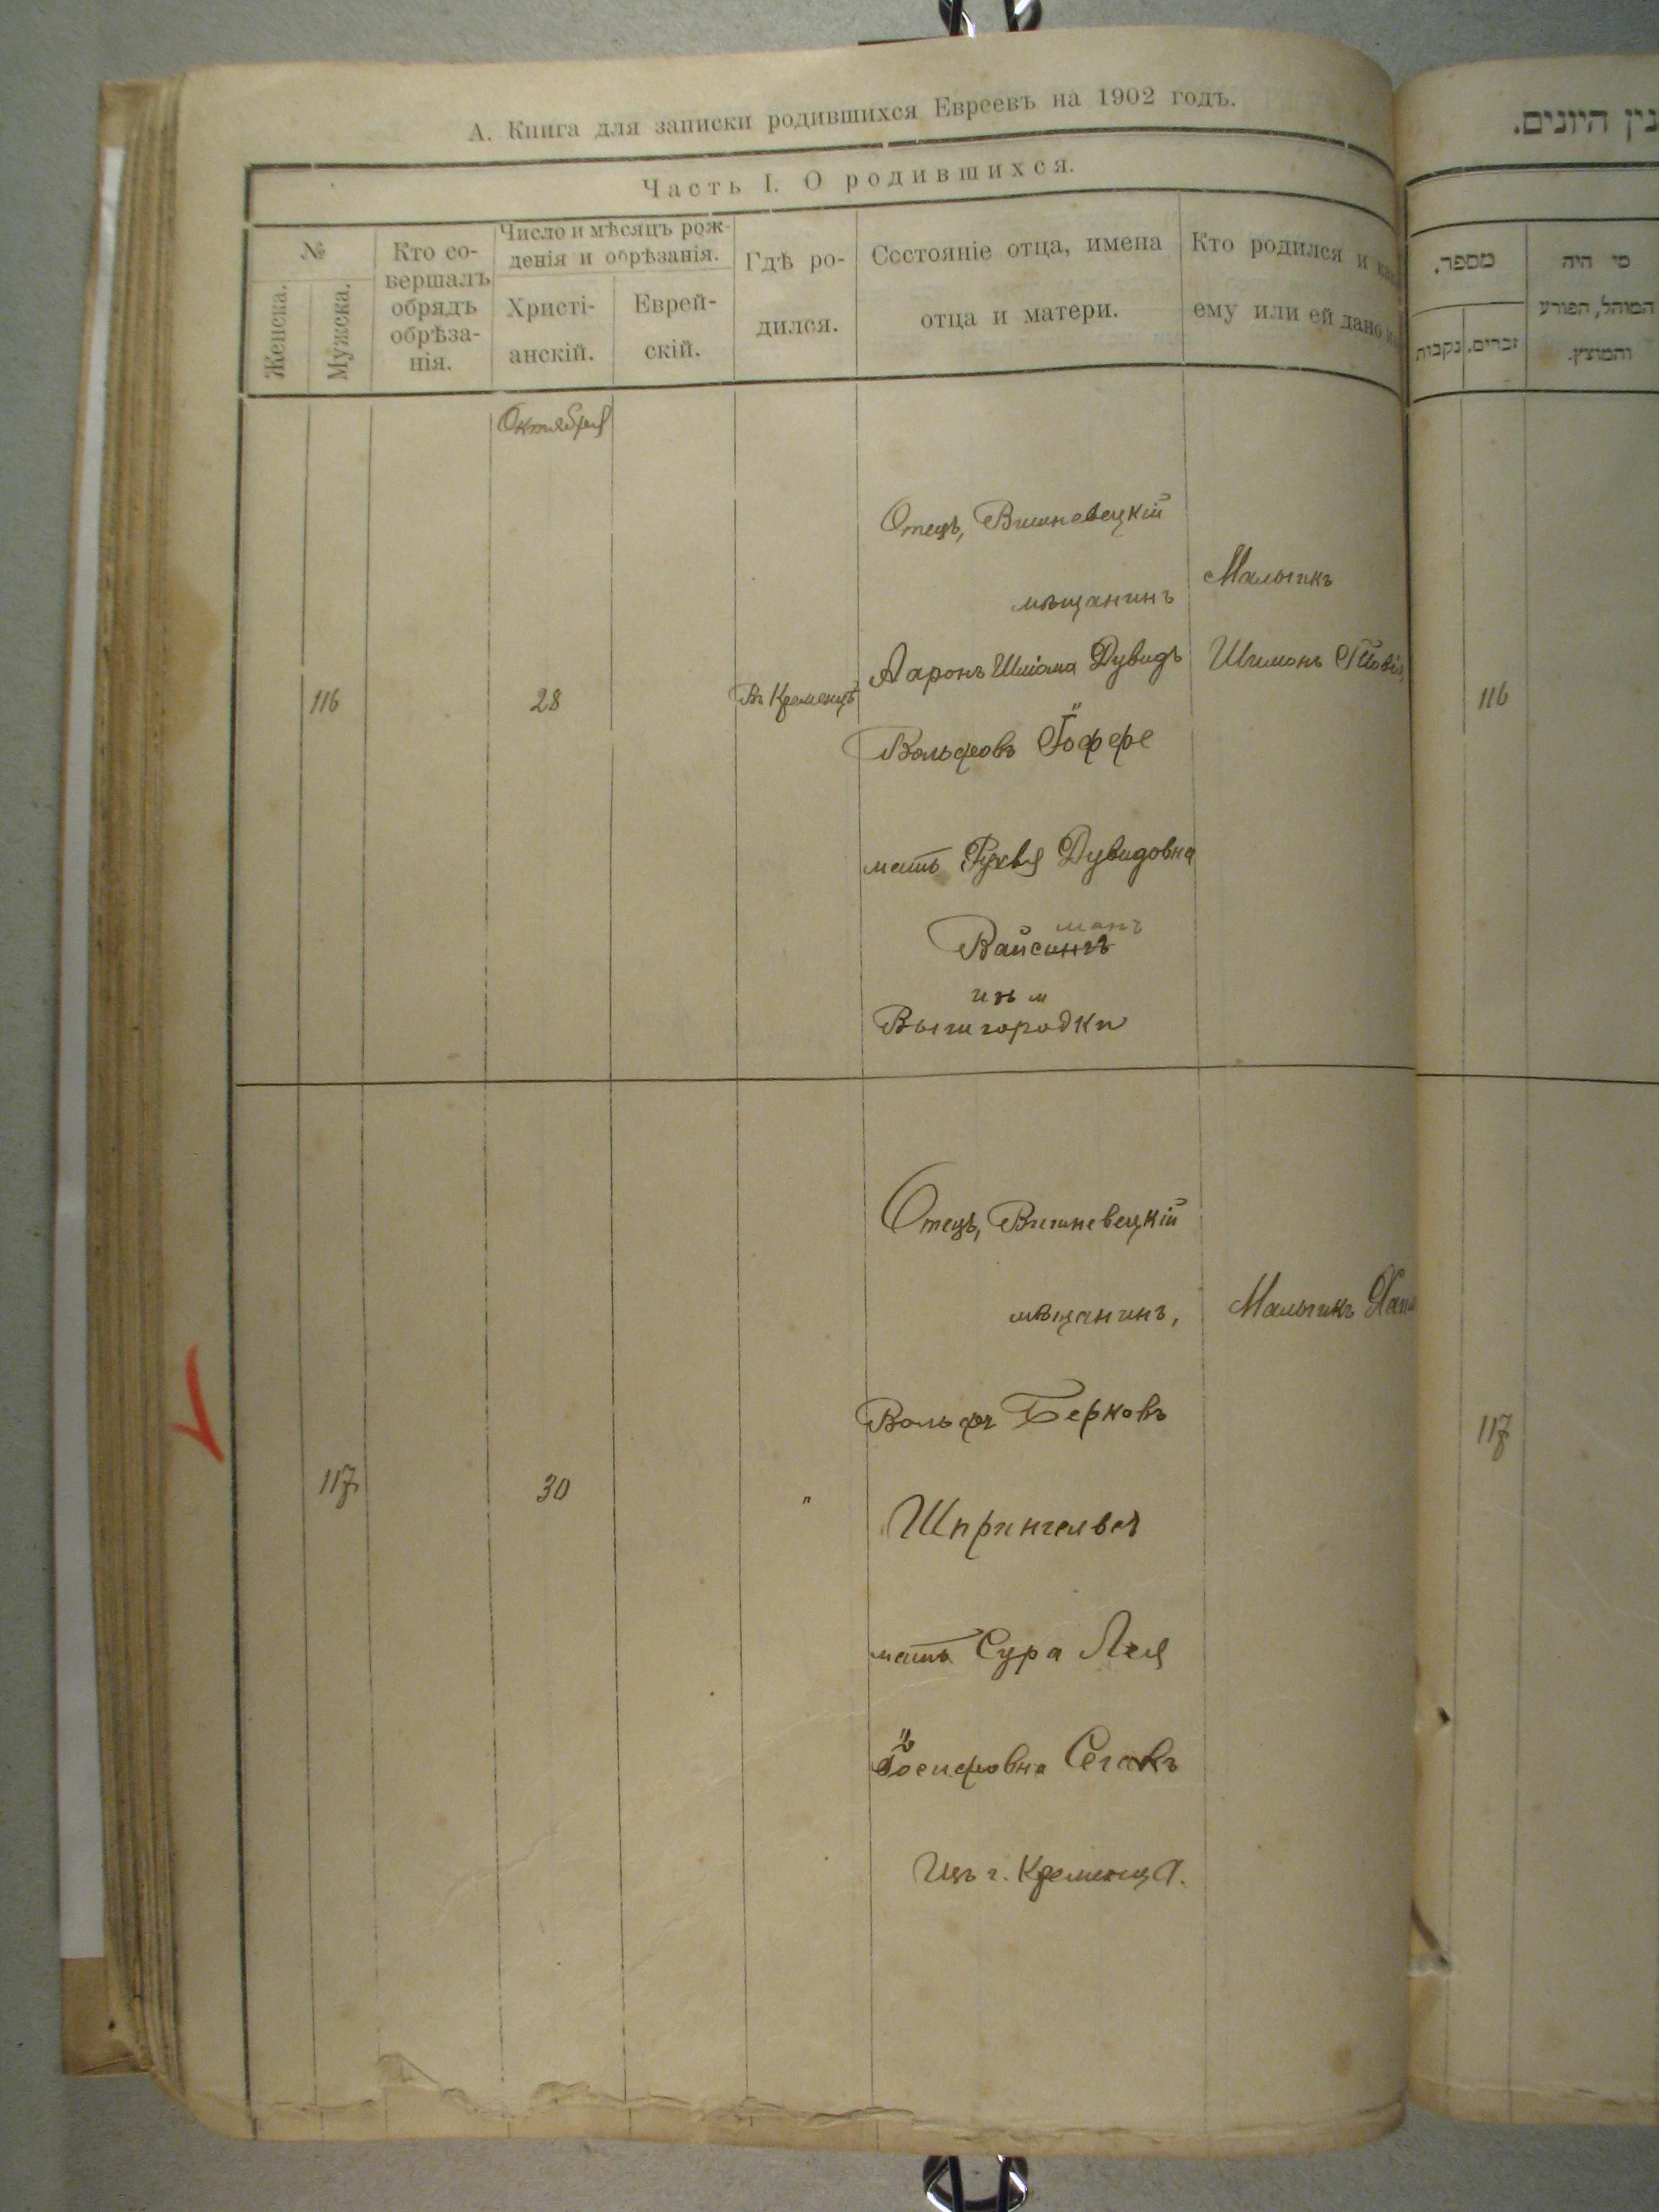 А. Книга для записки родившихся Евреевъ на 1902 годъ.
Часть I. О родившихся.
№
Женска.
Мужска.
Кто со-
вершалъ
обрядъ
обрѣза-
нія.
Число и мѣсяцъ рож-
денія и обрѣзанія.
Христі-
анскій.
Еврей-
скій.
Гдѣ ро-
дился.
Состояніе отца, имена
отца и матери.
Кто родился и
ему или ей дано
Октября
116
28
Въ Кременцѣ
Отецъ, Вишневецкій
мѣщанинъ
Ааронъ Шлiома Дувидъ
Вольфовъ Іоффе
мать Рухля Дувидовна
манъ
Вайсингъ
изъ м
Вышгородки
Мальчикъ
Шимонъ
117
30
"
Отецъ, Вишневецкій
мѣщанинъ,
Вольфъ Берковъ
Шпрингелвег
мать Сура Лея
Іосифовна Сегалъ
Изъ г. Кременца.
Мальчикъ
מספר.
זכרים.
נקבות
מי היה
המוהל, הפורע
והמוצץ.
116
117